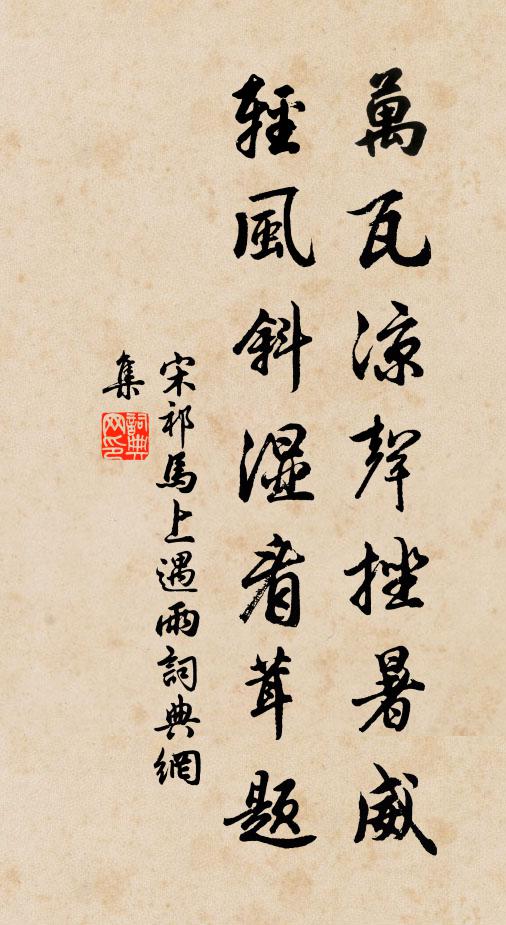 萬瓦涼聲挫暑威
輕風斜濕看茸題
宋祁馬上遇雨詞典網
集
詞典网印